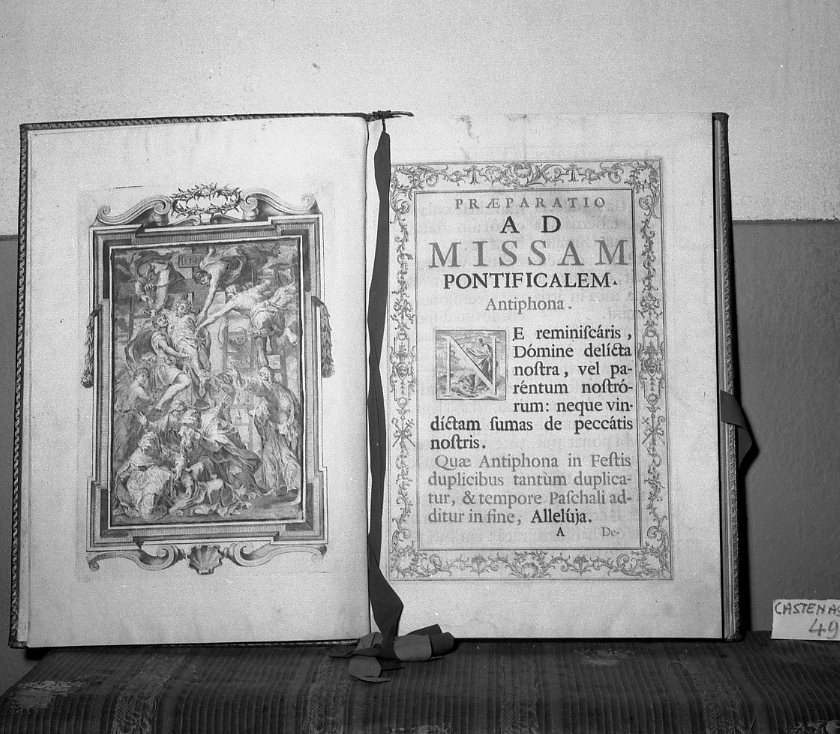 PRÆPARATIO
AD
MISSAM
PONTIFICALEM.
Antiphona.
NE reminiſcáris,
Dómine delícta
noſtra, vel pa-
réntum noſtró-
rum: neque vin-
díctam ſumas de peccátis
noſtris.
Quæ Antiphona in Feſtis
duplicibus tantum duplica-
tur, & tempore Paſchali ad-
ditur in fine, Allelúja.
A De-
CASTENAS
49